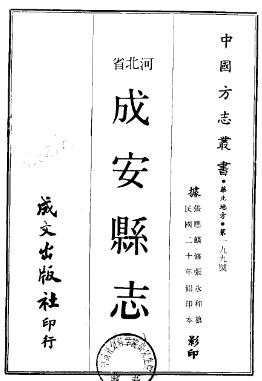 中國方志叢書・華北地方・第一九九號
據張應麟修張永和纂
民國二十年鉛印本
影印
河北省
成安縣志
成文出版社印行